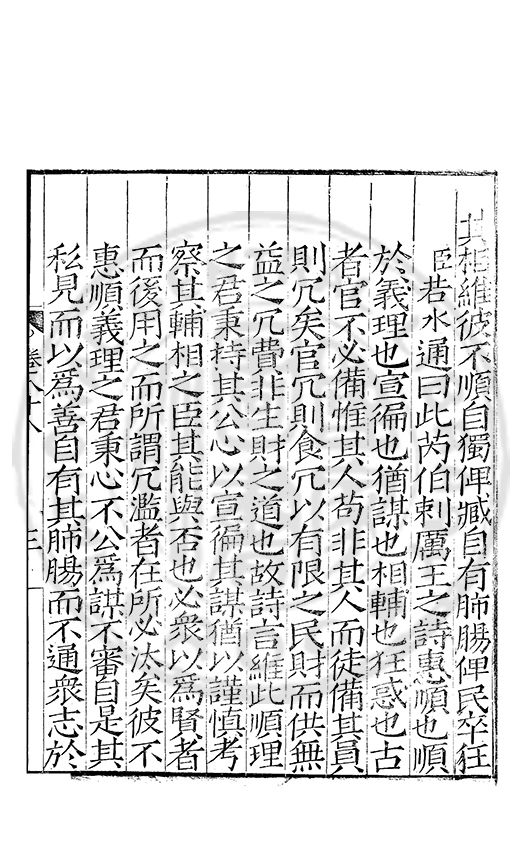 其相維彼不順自獨俾臧自有肺腸俾民卒狂
臣若水通曰此芮伯刺厲王之詩惠順也順
於義理也宣徧也猶謀也相輔也狂惑也古
者官不必備惟其人苟非其人而徒備其員
則冗矣官冗則食冗以有限之民財而供無
益之冗費非生財之道也故詩言維此順理
之君秉持其公心以宣徧其謀猶以謹慎考
察其輔相之臣其能與否也必衆以爲賢者
而後用之而所謂冗濫者在所必汰矣彼不
惠順義理之君秉心不公爲謀不審自是其
私見而以爲善自有其肺腸而不通衆志於
卷八十八
三